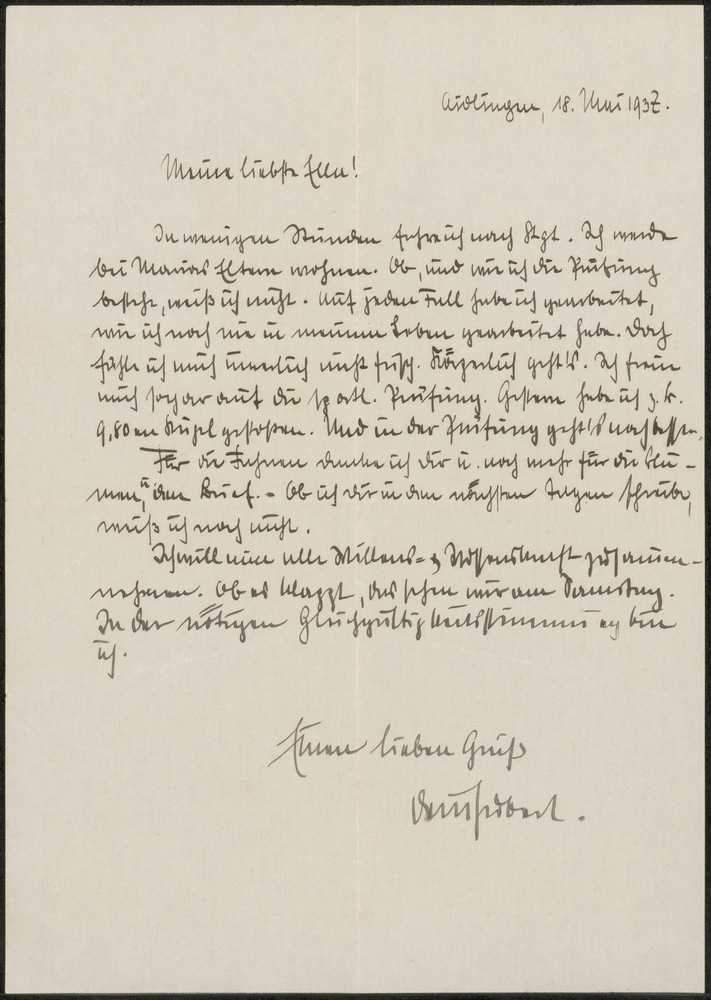 Aidlingen, 18. Mai 1937.
Meine liebste Ella!
In wenigen Stunden fahre ich nach Stgt. Ich werde
bei Marias Eltern wohnen. Ob, und wie ich die Prüfung
bestehe, weiß ich nicht. Auf jeden Fall habe ich gearbeitet,
wie ich noch nie in meinem Leben gearbeitet habe. Doch
fühle ich mich innerlich nicht frisch. Körperlich geht's. Ich freue
mich sogar auf die sportl. Prüfung. Gestern habe ich z. B.
9,80 m Kugel gestoßen. Und in der Prüfung geht's noch besser.
Für die Fahnen danke ich Dir u. noch mehr für die Blu-
men, u. den Brief. - Ob ich Dir in den nächsten Tagen schreibe,
weiß ich noch nicht.
Ich will nun alle Willens- & Wissenskraft zusammen-
nehmen. Ob es klappt, das sehen wir am Samstag.
In der nötigen Gleichgültigkeitsstimmung bin
ich.
Einen lieben Gruß
Dein